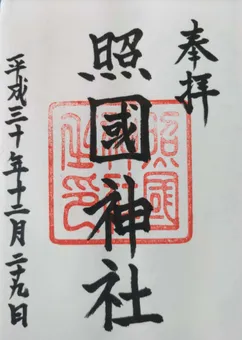 奉拝
照國神社
平成三十年十二月二十九日